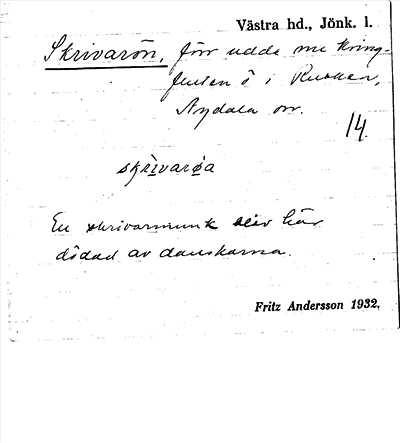 Västra hd., Jönk. l.
Skrivarön, förr udde nu kring-
fluten ö i Rusken,
Nydala sn.
14.
skrìvarø̀a
En skrivarmunk blev här
dödad av danskarna.
Fritz Andersson 1932.